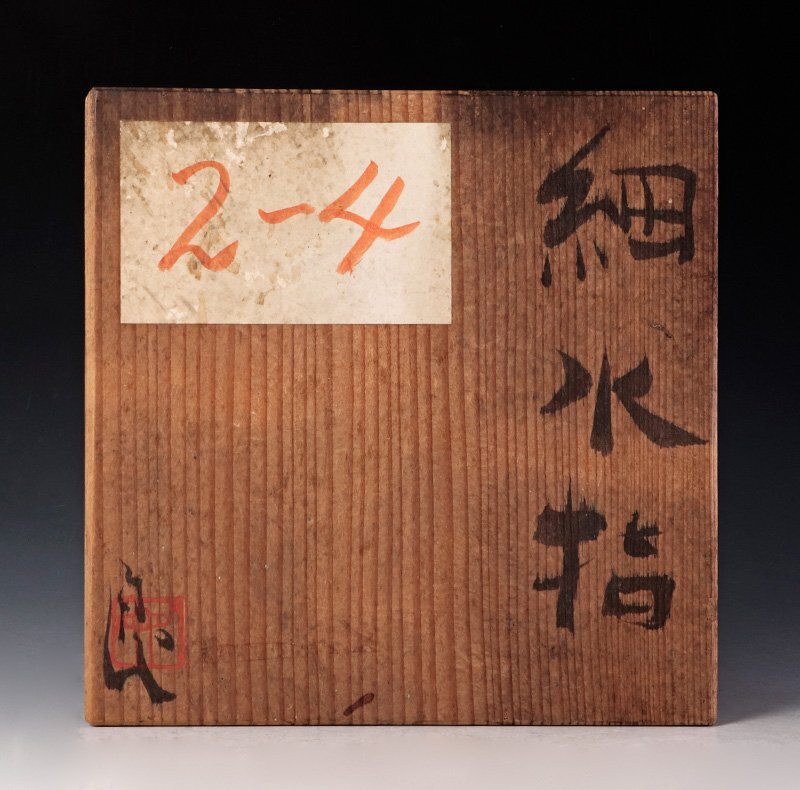 細水指
2-4